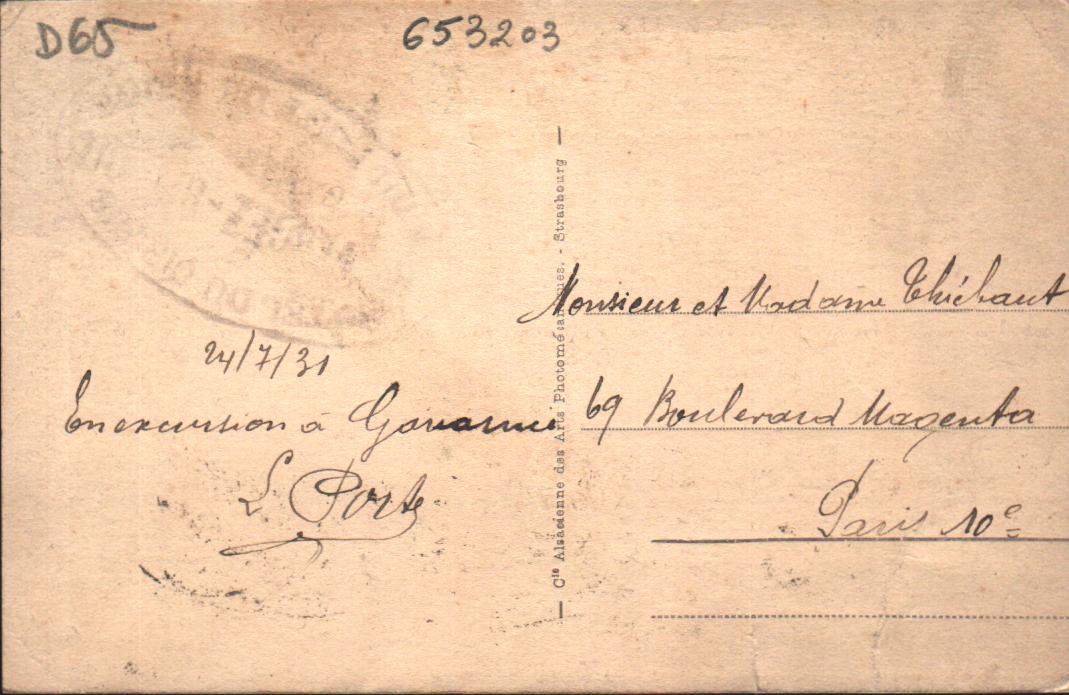 D65
653203
24/7/31
En excursion à Gavarnie
L Porte
Cie Alsacienne des Arts Photomécaniques. - Strasbourg
Monsieur et Madame Thiébaut
69 Boulevard Magenta
Paris 10e